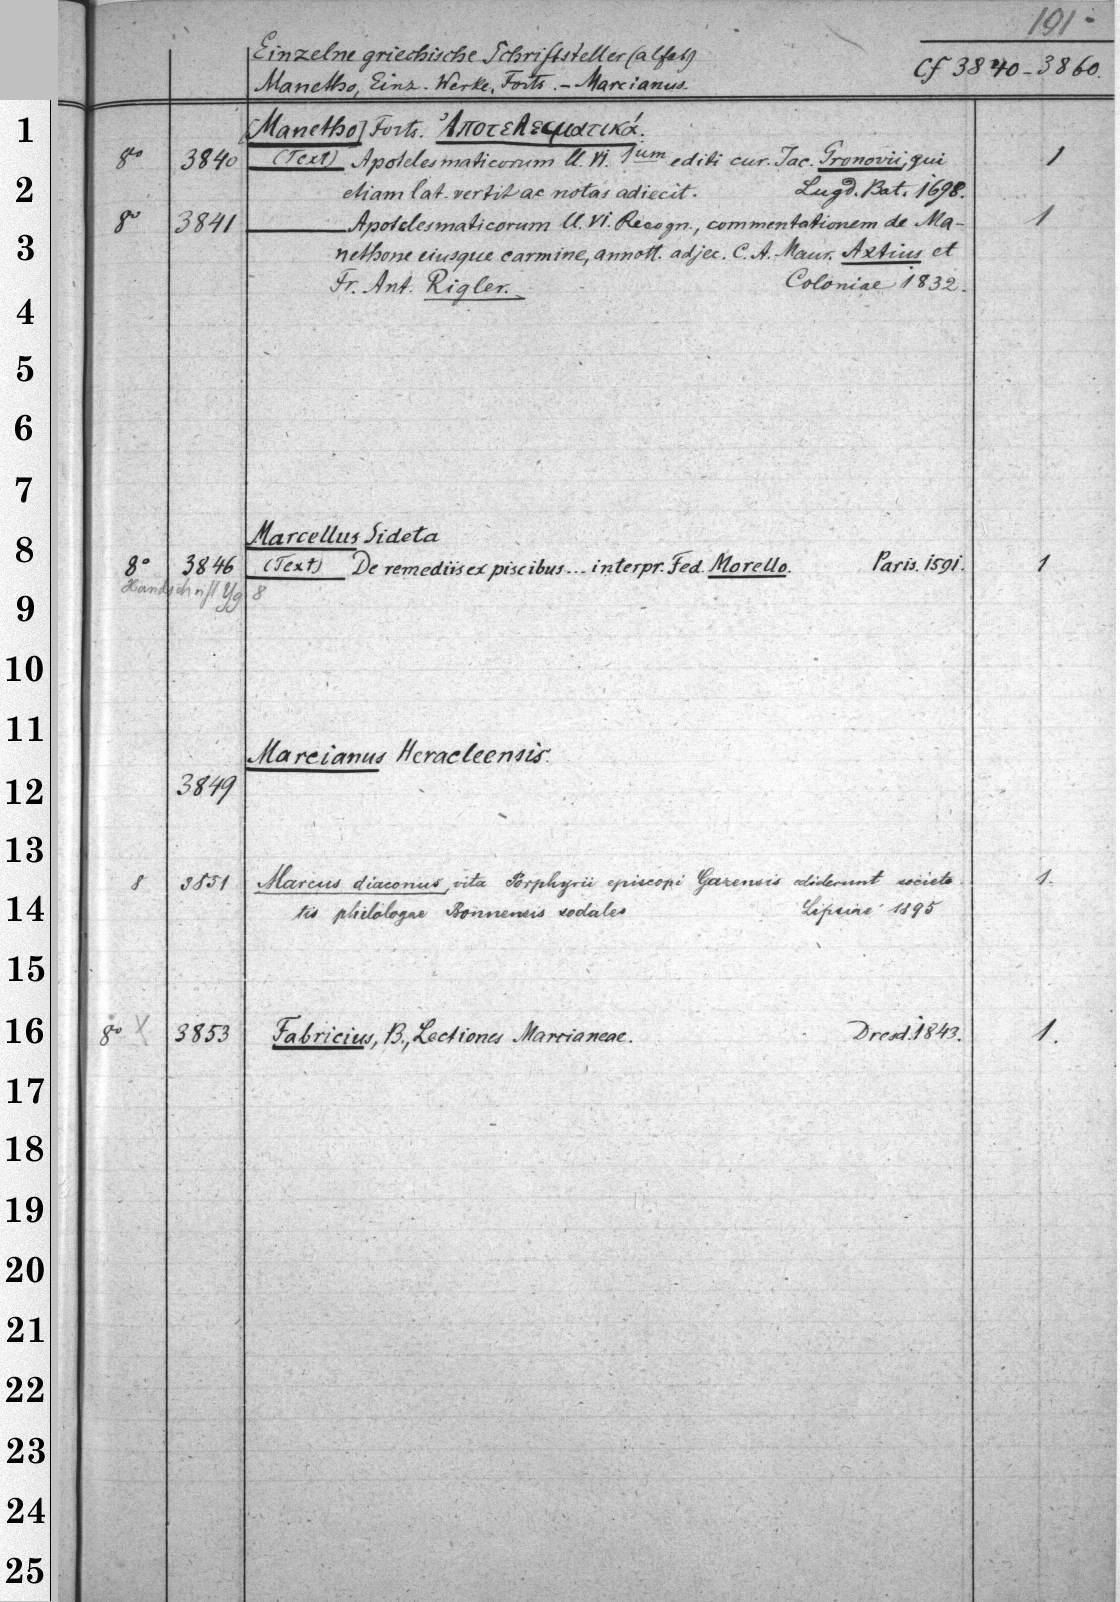 191.
Einzelne griechische Schriftsteller (alfab)
Cf 3840-3860.
Manetho, Einz. Werke, Forts. - Marcianus.
1
[Manetho] Forts. Ἀποτελεσματικά.
8° 3840 (Text) Apotelesmaticorum ll. VI. 1um editi cur. Iac. Gronovii, qui 1
2
etiam lat. vertit ac notas adiecit. Lugd. Bat. 1698.
8° 3841 Apotelesmaticorum ll. VI. Recogn., commentationem de Ma- 1
3
nethone eiusque carmine, annott. adjec. C. A. Maur. Axtius et
Fr. Ant. Rigler. Coloniae 1832.
4
5
6
7
Marcellus Sideta
8
8° 3846 (Text) De remediis ex piscibus... interpr. Fed. Morello. Paris. 1591. 1
Handschrift Yg 8
9
10
11
Marcianus Heracleensis.
12 3849
13
8 3851 Marcus diaconus, vita Porphyrii episcopi Gazensis ediderunt societa 1.
14
tis philologae Bonnensis sodales Lipsiae 1895
15
16 8° X 3853 Fabricius, B., Lectiones Marcianeae. Dresd. 1843. 1.
17
18
19
20
21
22
23
24
25